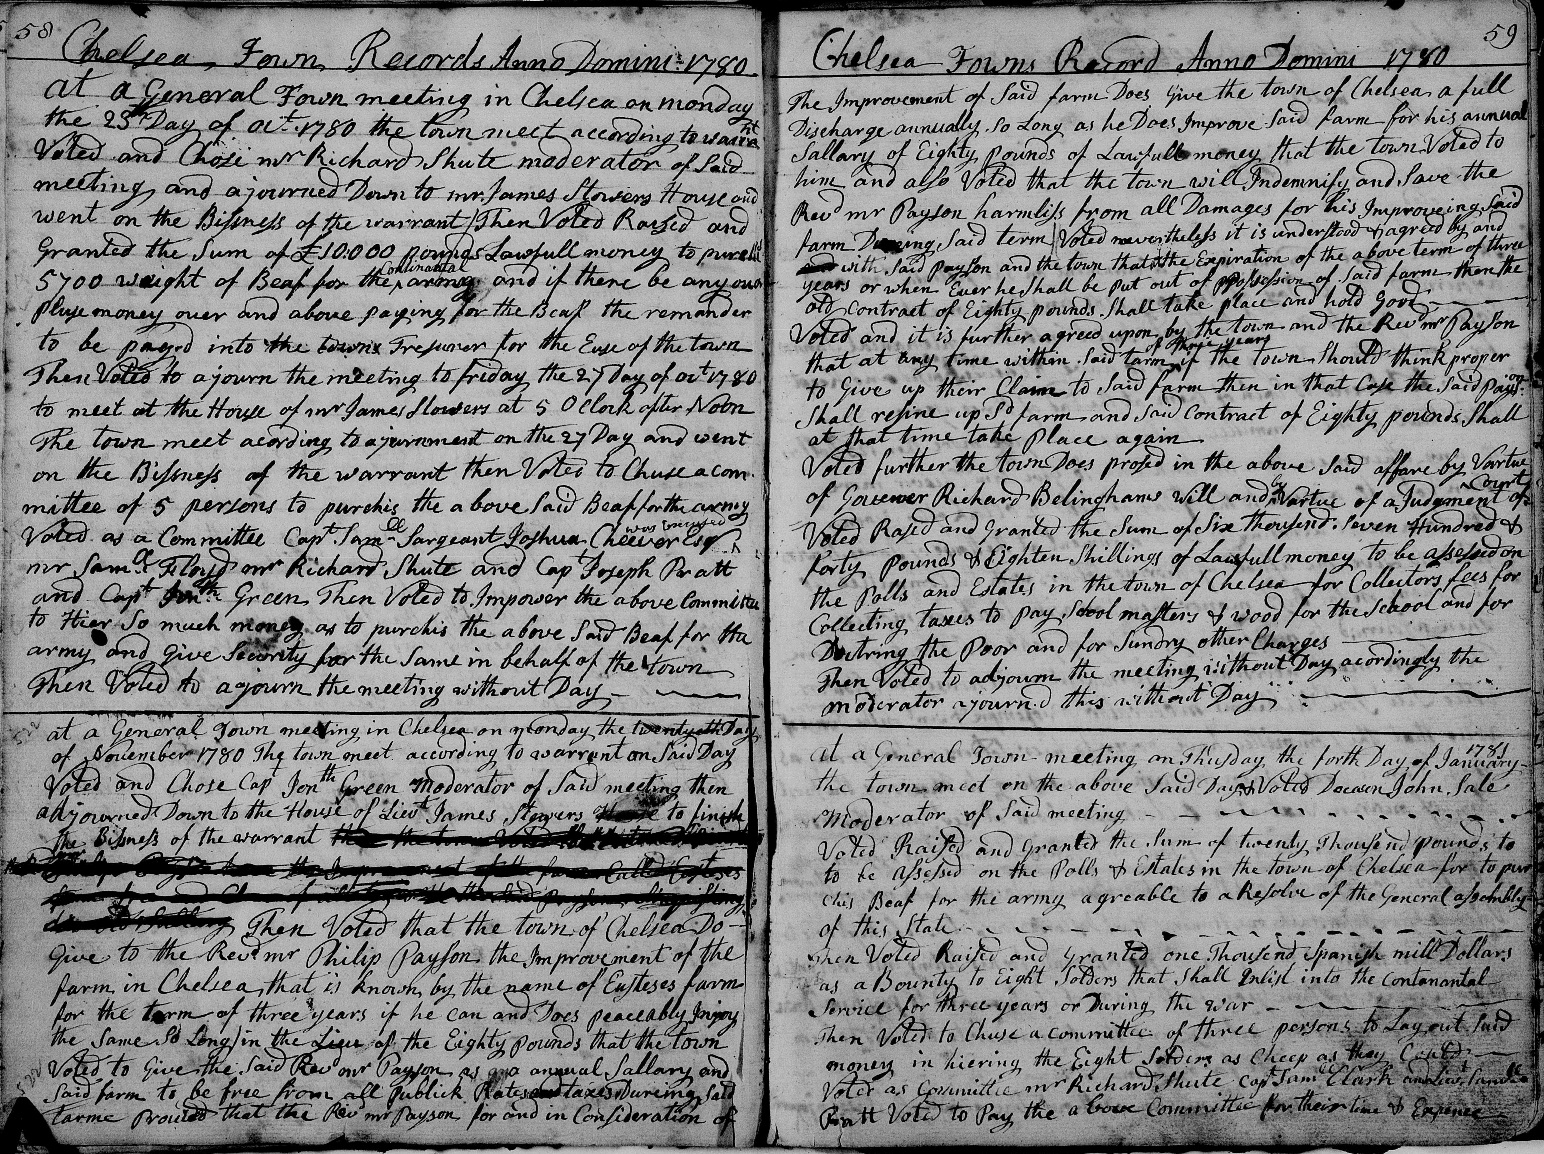 58
Chelsea Town Records Anno Domini 1780
at a General Town meeting in Chelsea on monday
the 23th Day of oct. 1780 the town meet according to warrant
Voted and Chose mr Richard Shute moderator of Said
meeting and ajourned Down to mr James Stowers House and
went on the Bissness of the warrant / Then Voted Raised and
Granted the Sum of £10:000 pounds Lawfull money to purchis
5700 weight of Beaf for the Continantal army and if there be any over
Pluse money over and above paying for the Beaf the remander
to be payed into the towns Tresurer for the Euse of the town
Then Voted to ajourn the meeting to friday the 27 Day of oct 1780
to meet at the House of mr James Stowers at 5 O Clock after Noon
The town meet acording to ajurnment on the 27 Day and went
on the Bissness of the warrant then Voted to Chuse a com
mittee of 5 persons to purchis the above Said Beaf for the army
Voted as a Committee Capt Samll Sargeant Joshua Cheever Esqr was excused
mr Samll Floyd mr Richard Shute and Cap Joseph Pratt
and Capt Jonth Green Then Voted to Impower the above Committee
to Hier So much money as to purchis the above Said Beaf for the
army and Give Security for the Same in behalf of the town
Then Voted to ajourn the meeting without Day
at a General Town meeting in Chelsea on monday the twentyeth Day
of November 1780 The town meet according to warrant on Said Day
Voted and Chose Cap Jonth Green Moderator of Said meeting then
adjourned Down to the House of Lieut James Stowers House to finish
the Bissness of the warrant
Then Voted that the town of Chelsea Do
Give to the Revd mr Philip Payson the Improvement of the
farm in Chelsea that is known by the name of Eusteses farm
for the term of three years if he can and Does peaceably Injoy
the Same So Long in the Lieu of the Eighty pounds that the town
Voted to Give the Said Revd mr Payson as a annual Sallary and
Said farm to be free from all Publick Rates and taxes Dureing Said
tarme Provided that the Revd mr Payson for and in Consideration of
59
Chelsea Towns Record Anno Domini 1780
The Improvement of Said farm Does Give the town of Chelsea a full
Discharge annually So Long as he Does Improve Said farm for his annual
Sallary of Eighty pounds of Lawfull money that the town Voted to
him and also Voted that the town will Indemnify and Save the
Revd mr Payson harmliss from all Damages for his Improveing Said
farm Dureing Said term / Voted nevertheless it is understood & agreed by and
with Said Payson and the town that at the Expiration of the above term of three
years or when Ever he Shall be put out of Possession of Said farm then the
old Contract of Eighty pounds Shall take place and hold Good
Voted and it is further agreed upon by the town and the Revd mr Payson
that at any time within Said tarm of three years if the town Should think proper
to Give up their Claim to Said farm then in that Case the Said Payson
Shall resine up Sd farm and Said Contract of Eighty pounds Shall
at that time take Place again
Voted further the town Does prosed in the above Said affare by Vartue
of Gouewer Richard Belinghams Will and by Vartue of a Judgment of Court
Voted Rased and Granted the Sum of Six thousend Seven Hundred &
forty Pounds & Eighten Shillings of Lawfull money to be assessed on
the Polls and Estates in the town of Chelsea for Collectors fees for
Collecting taxes to pay Scool masters & wood for the School and for
Doctring the Poor and for Sundry other Charges
Then Voted to adjourn the meeting without Day acordingly the
moderator ajourn.d this without Day
at a General Town meeting on Thusday the forth Day of January 1781
the town meet on the above Said Day & Voted Doeaen John Sale
Moderator of Said meeting
Voted Raised and Granted the Sum of twenty Thousend Pounds to
to be assessed on the Polls & Estates in the town of Chelsea for to pur
chis Beaf for the army agreable to a Resolve of the General assembly
of this State
Then Voted Raised and Granted one Thousend Spanish mill Dollars
as a Bounty to Eight Solders that Shall Inlist into the Contanantal
Service for three years or During the war
Then Voted to Chuse a committee of three persons to Lay out Said
money in hiering the Eight Solders as Cheep as they Could
Voted as Committee mr Richard Shute capt Samll Clark and Lieut Samll
Pratt Voted to Pay the above Committee for their time & Expence